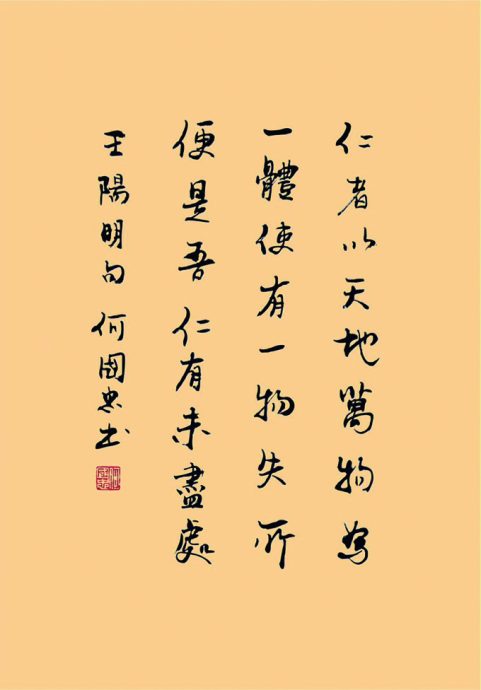 仁者以天地萬物為
一體使有一物失所
便是吾仁有未盡處
王陽明句何國忠書